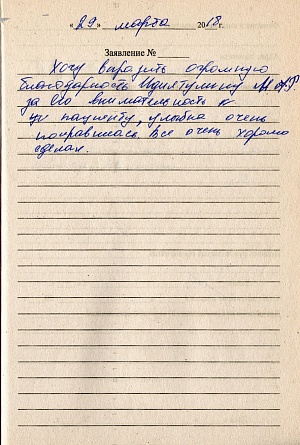 «29» марта 2018 г.
Заявление №
Хочу выразить огромную
благодарность М.Ф.
за его внимательность к
пациенту, улыбка очень
понравилась. Все очень хорошо
сделал.